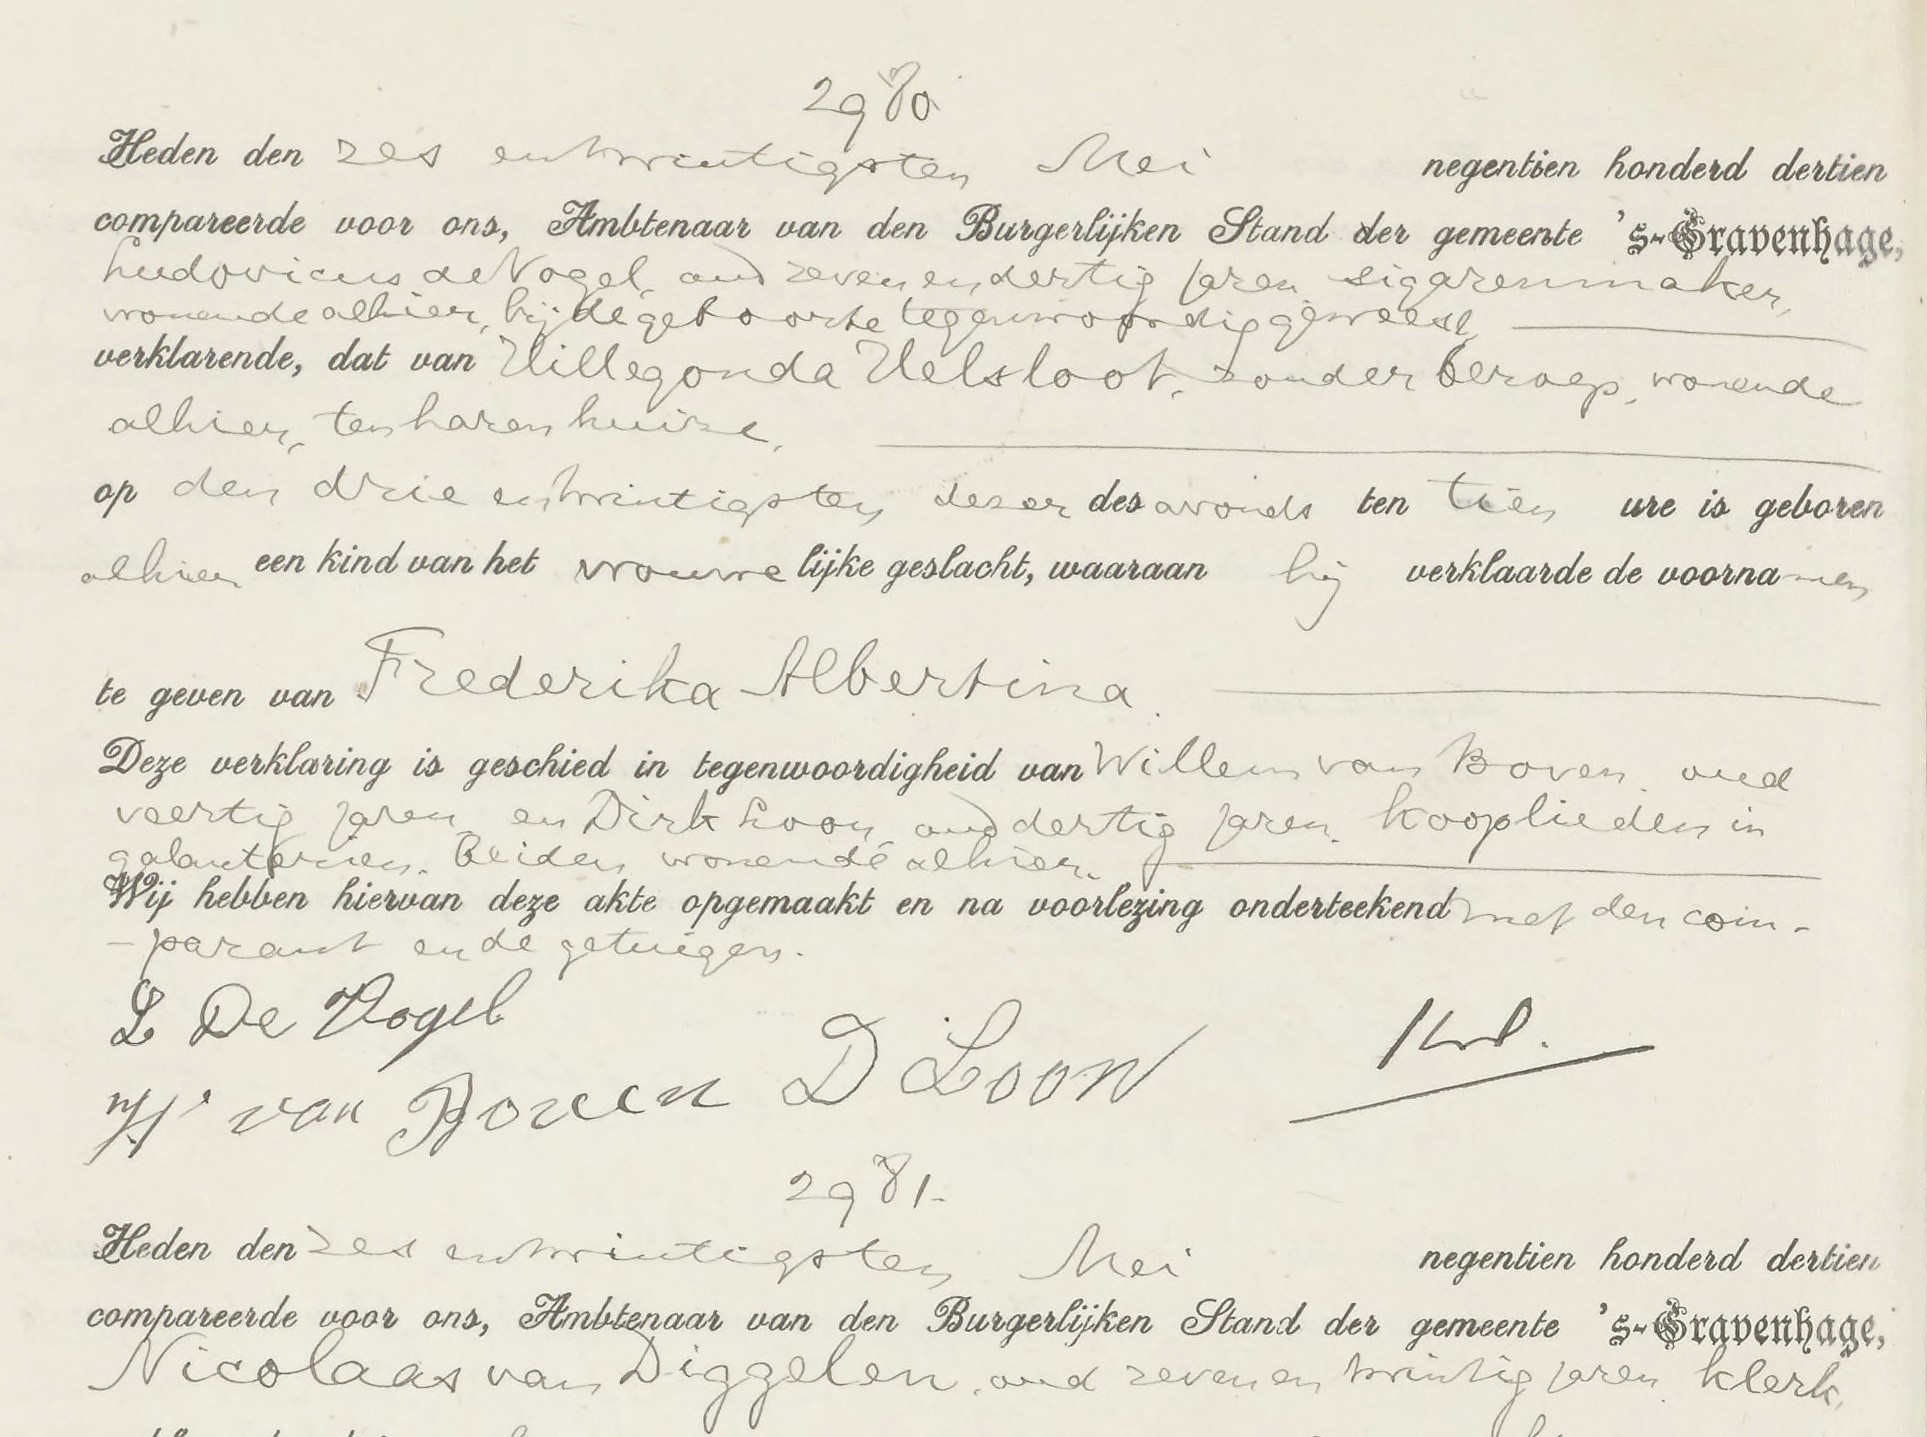 2980
Heden den zes en twintigsten Mei negentien honderd dertien
compareerde voor ons, Ambtenaar van den Burgerlijken Stand der gemeente 's-Gravenhage,
Ludovicus de Vogel, oud zeven en dertig jaren, sigarenmaker,
wonende alhier, bij de geboorte tegenwoordig geweest,
verklarende, dat van Hillegonda Helsloot, zonder beroep, wonende
alhier, ten haren huize,
op den drie en twintigsten dezer des avonds ten tien ure is geboren
alhier een kind van het vrouwelijke geslacht, waaraan hij verklaarde de voornamen
te geven van Frederika Albertina.
Deze verklaring is geschied in tegenwoordigheid van Willem van Boven, oud
veertig jaren, en Dirk Loon, oud dertig jaren, kooplieden in
galanteriën, beiden wonende alhier.
Wij hebben hiervan deze akte opgemaakt en na voorlezing onderteekend met den com-
-parant en de getuigen.
L De Vogel
W van Boven D Loon
2981.
Heden den zes en twintigsten Mei negentien honderd dertien
compareerde voor ons, Ambtenaar van den Burgerlijken Stand der gemeente 's-Gravenhage,
Nicolaas van Diggelen, oud zeven en twintig jaren, klerk,